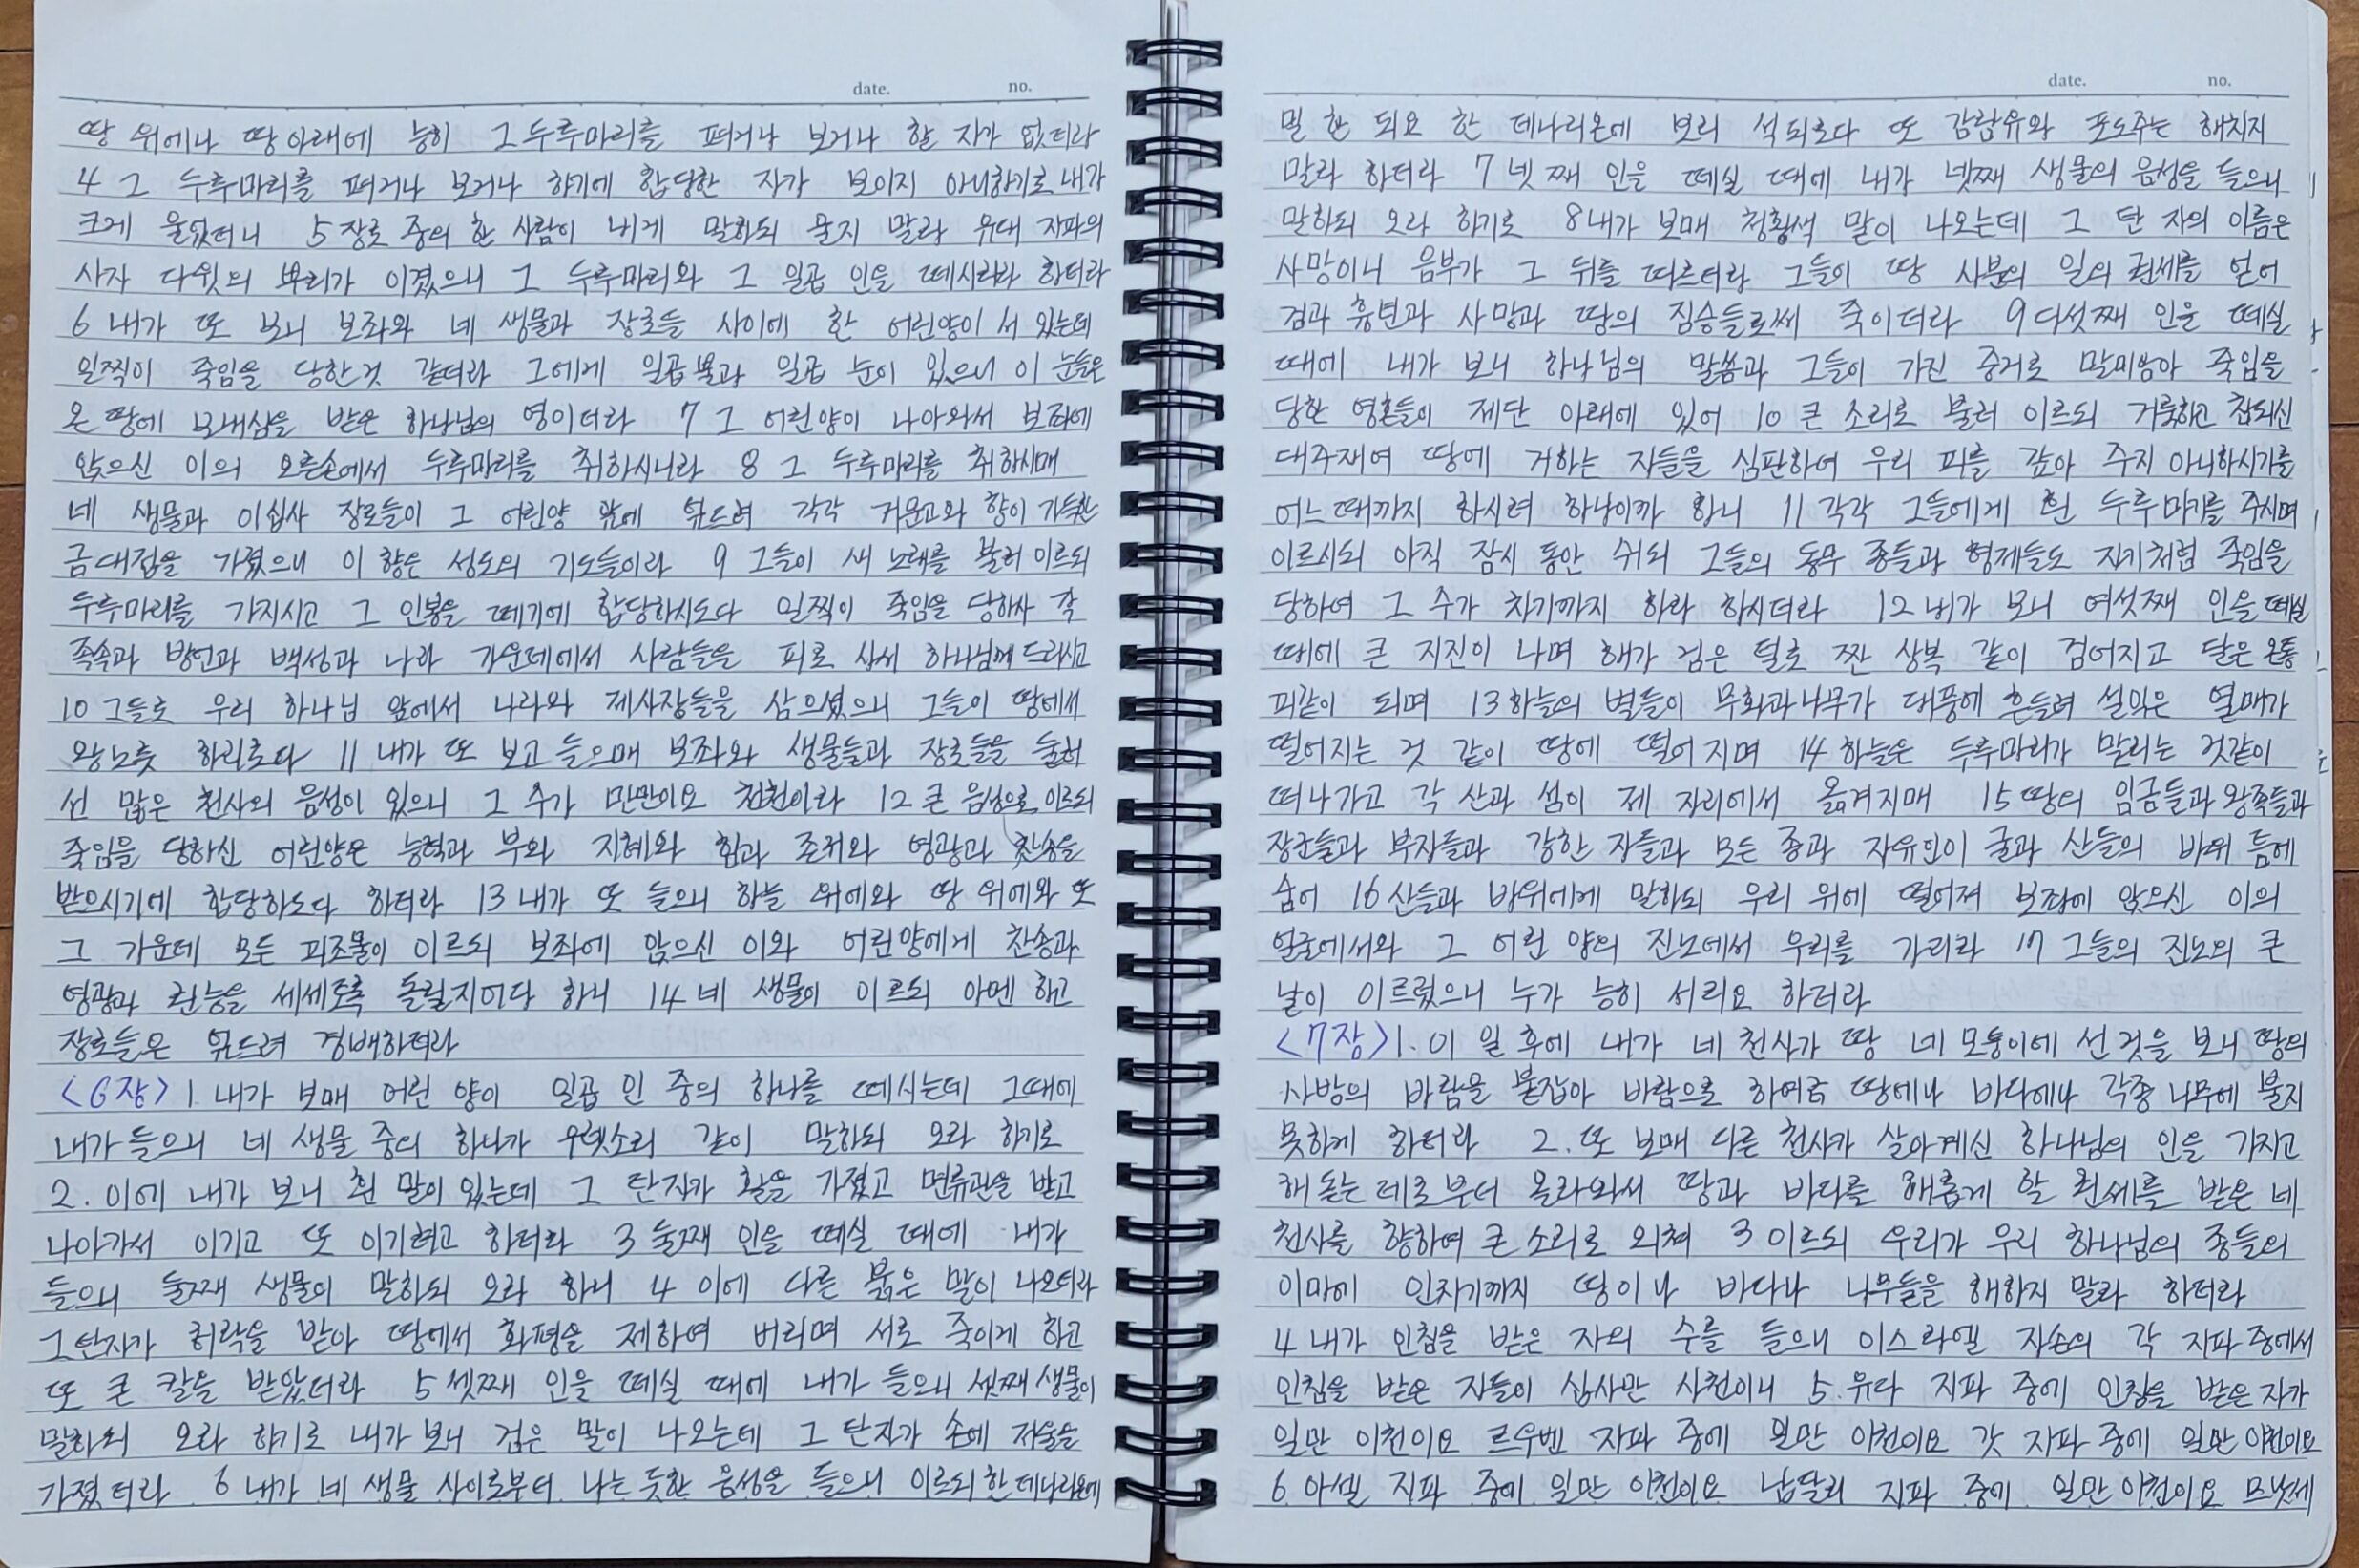 date. no.
땅 위에나 땅 아래에 능히 그 두루마리를 펴거나 보거나 할 자가 없더라
4 그 두루마리를 펴거나 보거나 하기에 합당한 자가 보이지 아니하기로 내가
크게 울었더니 5 장로 중의 한 사람이 내게 말하되 울지 말라 유대 지파의
사자 다윗의 뿌리가 이겼으니 그 두루마리와 그 일곱 인을 떼시리라 하더라
6 내가 또 보니 보좌와 네 생물과 장로들 사이에 한 어린양이 서 있는데
일찍이 죽임을 당한것 같더라 그에게 일곱 뿔과 일곱 눈이 있으니 이 눈들은
온 땅에 보내심을 받은 하나님의 영이더라 7 그 어린양이 나아와서 보좌에
앉으신 이의 오른손에서 두루마리를 취하시니라 8 그 두루마리를 취하시매
네 생물과 이십사 장로들이 그 어린양 앞에 엎드려 각각 거문고와 향이 가득한
금대접을 가졌으니 이 향은 성도의 기도들이라 9 그들이 새 노래를 불러 이르되
두루마리를 가지시고 그 인봉을 떼기에 합당하시도다 일찍이 죽임을 당하사 각
족속과 방언과 백성과 나라 가운데에서 사람들을 피로 사서 하나님께 드리시고
10 그들로 우리 하나님 앞에서 나라와 제사장들을 삼으셨으니 그들이 땅에서
왕노릇 하리로다 11 내가 또 보고 들으매 보좌와 생물들과 장로들을 둘러
선 많은 천사의 음성이 있으니 그 수가 만만이요 천천이라 12 큰 음성으로 이르되
죽임을 당하신 어린양은 능력과 부와 지혜와 힘과 존귀와 영광과 찬송을
받으시기에 합당하도다 하더라 13 내가 또 들으니 하늘 위에와 땅 위에와 또
그 가운데 모든 피조물이 이르되 보좌에 앉으신 이와 어린양에게 찬송과
영광과 권능을 세세토록 돌릴지어다 하니 14 네 생물이 이르되 아멘 하고
장로들은 엎드려 경배하더라
<6장> 1. 내가 보매 어린 양이 일곱 인 중의 하나를 떼시는데 그때에
내가 들으니 네 생물 중의 하나가 우렛소리 같이 말하되 오라 하기로
2. 이에 내가 보니 흰 말이 있는데 그 탄자가 활을 가졌고 면류관을 받고
나아가서 이기고 또 이기려고 하더라 3 둘째 인을 떼실 때에 내가
들으니 둘째 생물이 말하되 오라 하니 4 이에 다른 붉은 말이 나오더라
그 탄자가 허락을 받아 땅에서 화평을 제하여 버리며 서로 죽이게 하고
또 큰 칼을 받았더라 5 셋째 인을 떼실 때에 내가 들으니 셋째 생물이
말하되 오라 하기로 내가 보니 검은 말이 나오는데 그 탄자가 손에 저울을
가졌더라 6 내가 네 생물 사이로부터 나는 듯한 음성을 들으니 이르되 한 데나리온에
date. no.
밀 한 되요 한 데나리온에 보리 석 되로다 또 감람유와 포도주는 해치지
말라 하더라 7 넷째 인을 떼실 때에 내가 넷째 생물의 음성을 들으니
말하되 오라 하기로 8 내가 보매 청황색 말이 나오는데 그 탄 자의 이름은
사망이니 음부가 그 뒤를 따르더라 그들이 땅 사분의 일의 권세를 얻어
검과 흉년과 사망과 땅의 짐승들로써 죽이더라 9 다섯째 인을 떼실
때에 내가 보니 하나님의 말씀과 그들이 가진 증거로 말미암아 죽임을
당한 영혼들이 제단 아래에 있어 10 큰 소리로 불러 이르되 거룩하고 참되신
대주재여 땅에 거하는 자들을 심판하여 우리 피를 갚아 주지 아니하시기를
어느 때까지 하시려 하나이까 하니 11 각각 그들에게 흰 두루마기를 주시며
이르시되 아직 잠시 동안 쉬되 그들의 동무 종들과 형제들도 자기처럼 죽임을
당하여 그 수가 차기까지 하라 하시더라 12 내가 보니 여섯째 인을 떼실
때에 큰 지진이 나며 해가 검은 털로 짠 상복 같이 검어지고 달은 온통
피같이 되며 13 하늘의 별들이 무화과나무가 대풍에 흔들려 설익은 열매가
떨어지는 것 같이 땅에 떨어지며 14 하늘은 두루마리가 말리는 것같이
떠나가고 각 산과 섬이 제 자리에서 옮겨지매 15 땅의 임금들과 왕족들과
장군들과 부자들과 강한 자들과 모든 종과 자유인이 굴과 산들의 바위 틈에
숨어 16 산들과 바위에게 말하되 우리 위에 떨어져 보좌에 앉으신 이의
얼굴에서와 그 어린 양의 진노에서 우리를 가리라 17 그들의 진노의 큰
날이 이르렀으니 누가 능히 서리요 하더라
<7장> 1. 이 일 후에 내가 네 천사가 땅 네 모퉁이에 선 것을 보니 땅의
사방의 바람을 붙잡아 바람으로 하여금 땅에나 바다에나 각종 나무에 불지
못하게 하더라 2. 또 보매 다른 천사가 살아계신 하나님의 인을 가지고
해 돋는 데로부터 올라와서 땅과 바다를 해롭게 할 권세를 받은 네
천사를 향하여 큰 소리로 외쳐 3 이르되 우리가 우리 하나님의 종들의
이마에 인치기까지 땅이나 바다나 나무들을 해하지 말라 하더라
4 내가 인침을 받은 자의 수를 들으니 이스라엘 자손의 각 지파 중에서
인침을 받은 자들이 십사만 사천이니 5. 유다 지파 중에 인침을 받은 자가
일만 이천이요 르우벤 지파 중에 일만 이천이요 갓 지파 중에 일만 이천이요
6 아셀 지파 중에 일만 이천이요 납달리 지파 중에 일만 이천이요 므낫세